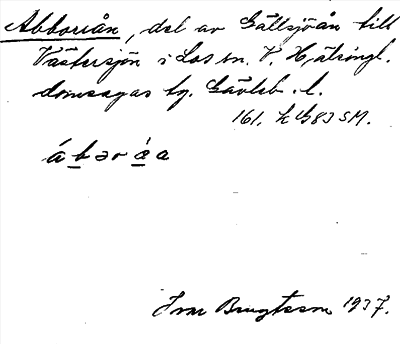 Abborrån, del av Gällsjöån till
Västersjön i Los sn. V. Hälsingl.
domsagas tg. Gävleb. l.
161. h 6833 SM.
á b ə r å a
Ivar Bengtsson 1937.